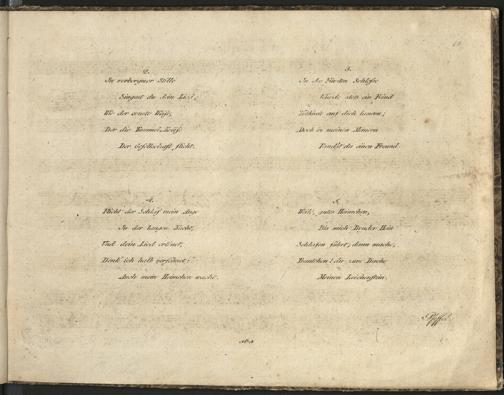 2.
In verborgner Stille
Singest du dein Lied,
Wie der ernste Weise,
Der die Kreise
Der Gesellschaft flieht.
3.
In der Fürsten Schlosse
Würde stets ein Feind
auf dich lauern;
Doch in meinen Mauern
Findest du einen Freund.
4.
Flieht der Schlaf mein Auge
In der langen Nacht,
Und dein Lied ertönet,
Denk' ich halb versöhnet:
Auch mein Heimchen wacht.
5.
Weile, gutes Heimchen,
Bis mich Bruder Hein
Schlafen führt, dann mache,
dir zum Dache
Meinen Leichenstein.
Pfeffel